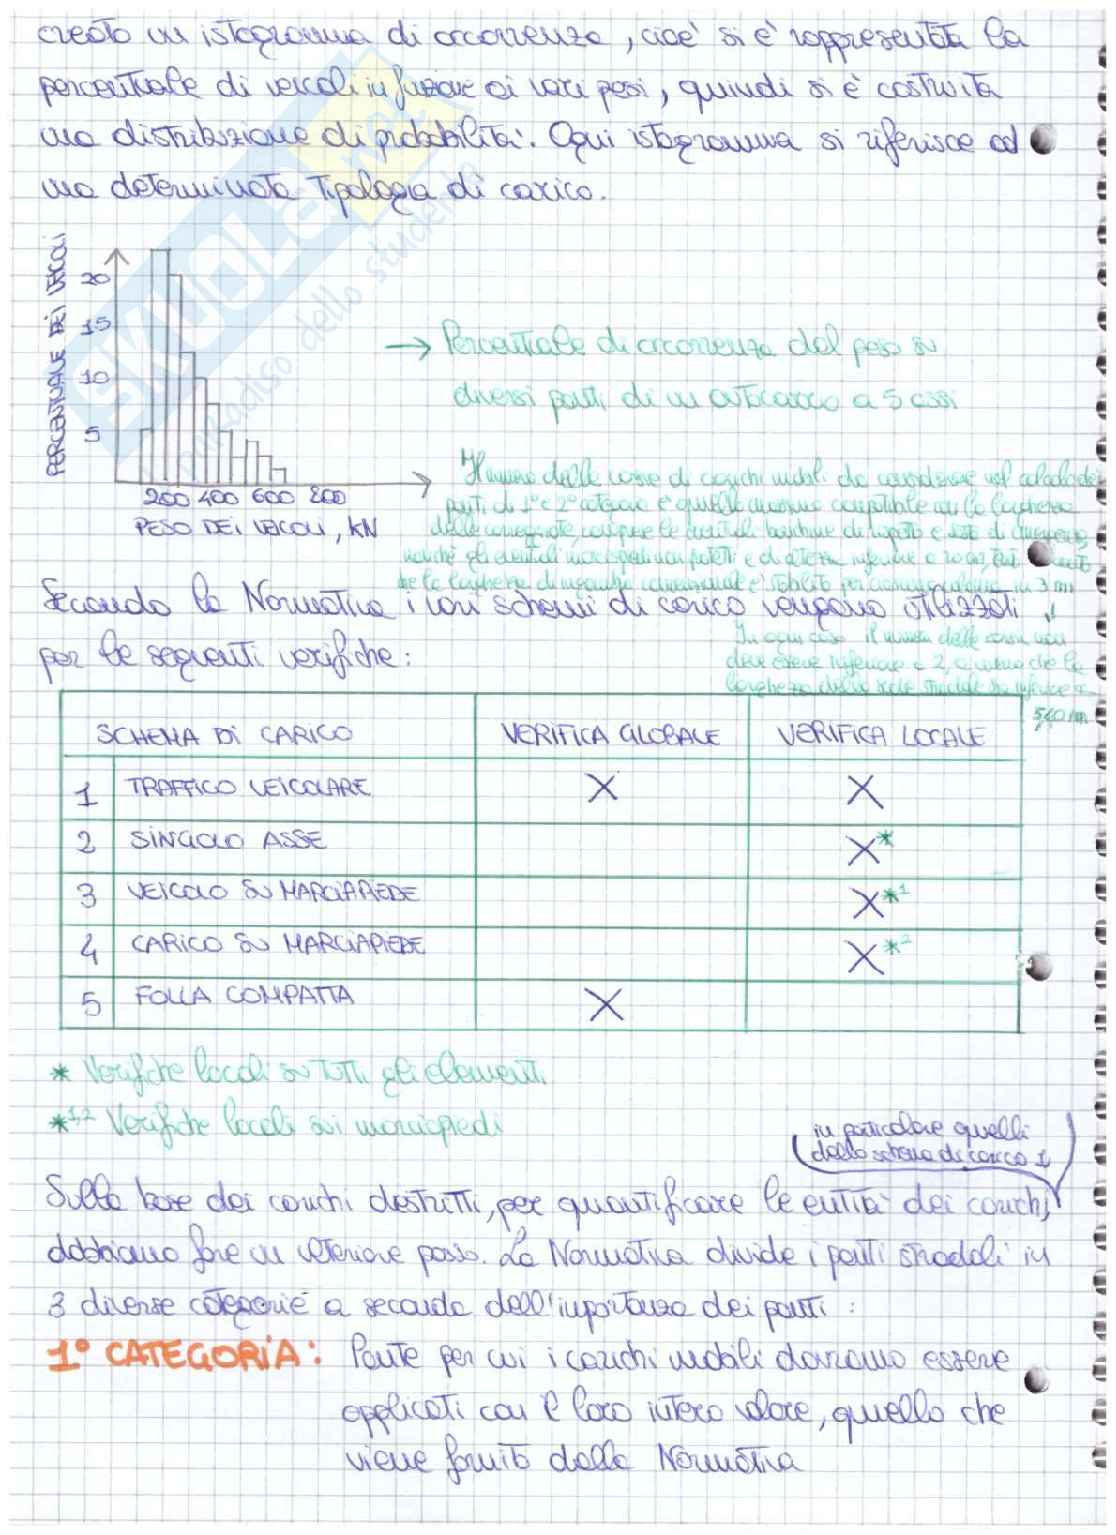 creato un istogramma di occorrenze, cioè si è rappresentata la
percentuale di veicoli in funzione ai vari pesi, quindi si è costruita
una distribuzione di probabilità. Ogni istogramma si riferisce ad
una determinata tipologia di carico.
PERCENTUALE DEI VEICOLI
20
15
10
5
200 400 600 800
PESO DEI VEICOLI, KN
SKUOLA.net
paradiso dello studente
→ Percentuale di occorrenza del peso su
diversi ponti di un autocarro a 5 assi
Il numero delle corsie di carichi mobili da considerare nel calcolo dei
ponti di 1° e 2° categoria è quello massimo compatibile con la larghezza
della carreggiata, comprese le eventuali banchine di rispetto e di
nonché gli eventuali marciapiedi non protetti e di altezza inferiore a 20 cm,
che la larghezza di ingombro convenzionale è stabilita per ciascuna in 3 m
In ogni caso il numero delle corsie non
deve essere inferiore a 2, a meno che la
larghezza della sede stradale sia inferiore a
5,40 m
Secondo la Normativa i vari schemi di carico vengono utilizzati
per le seguenti verifiche:
SCHEMA DI CARICO VERIFICA GLOBALE VERIFICA LOCALE
1 TRAFFICO VEICOLARE X X
2 SINGOLO ASSE X*
3 VEICOLO SU MARCIAPIEDE X*1
4 CARICO SU MARCIAPIEDE X*2
5 FOLLA COMPATTA X
* Verifiche locali su tutti gli elementi
*1,2 Verifiche locali sui marciapiedi
in particolare quelli
dello schema di carico 1
Sulla base dei carichi descritti, per quantificare le entità dei carichi,
dobbiamo fare un ulteriore passo. La Normativa divide i ponti stradali in
3 diverse categorie a seconda dell'importanza dei ponti:
1° CATEGORIA: Ponte per cui i carichi mobili dovranno essere
applicati con il loro intero valore, quello che
viene fornito dalla Normativa